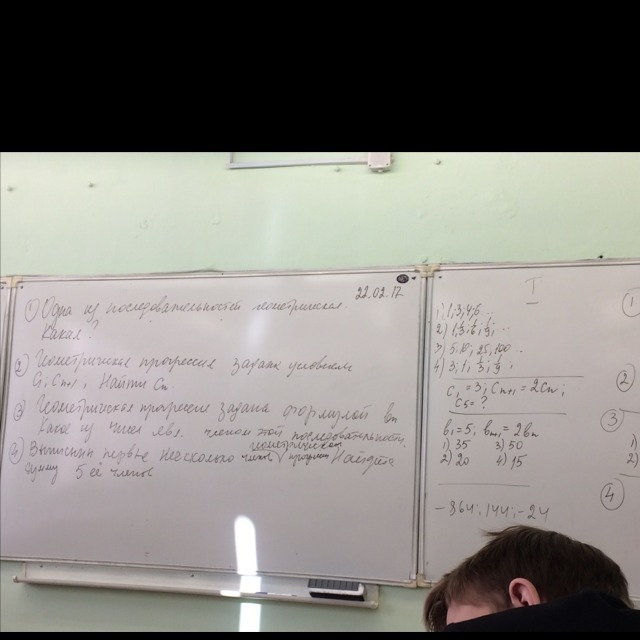 22.02.17
① Одна из последовательность геометрическая.
Какая?
② Геометрическая прогрессия задана условием
C₁, Cn+1, Найти Cn
③ Геометрическая прогрессия задана формулой bn
Какое из чисел явл. членом этой последовательности
④ Выписаны первые несколько членов геометрической прогрессии Найдите
сумму 5 её членов
I
1) 1; 3; 4; 5...
2)
3) 5; 10; 25; 100...
4) 3; 1;
C₁ = 3; Cn+1 = 2Cn;
C5 = ?
b₁ = 5; bn+1 = 2bn
1) 35 3) 50
2) 20 4) 15
-864; 144; -24
①
②
③
1)
2)
④